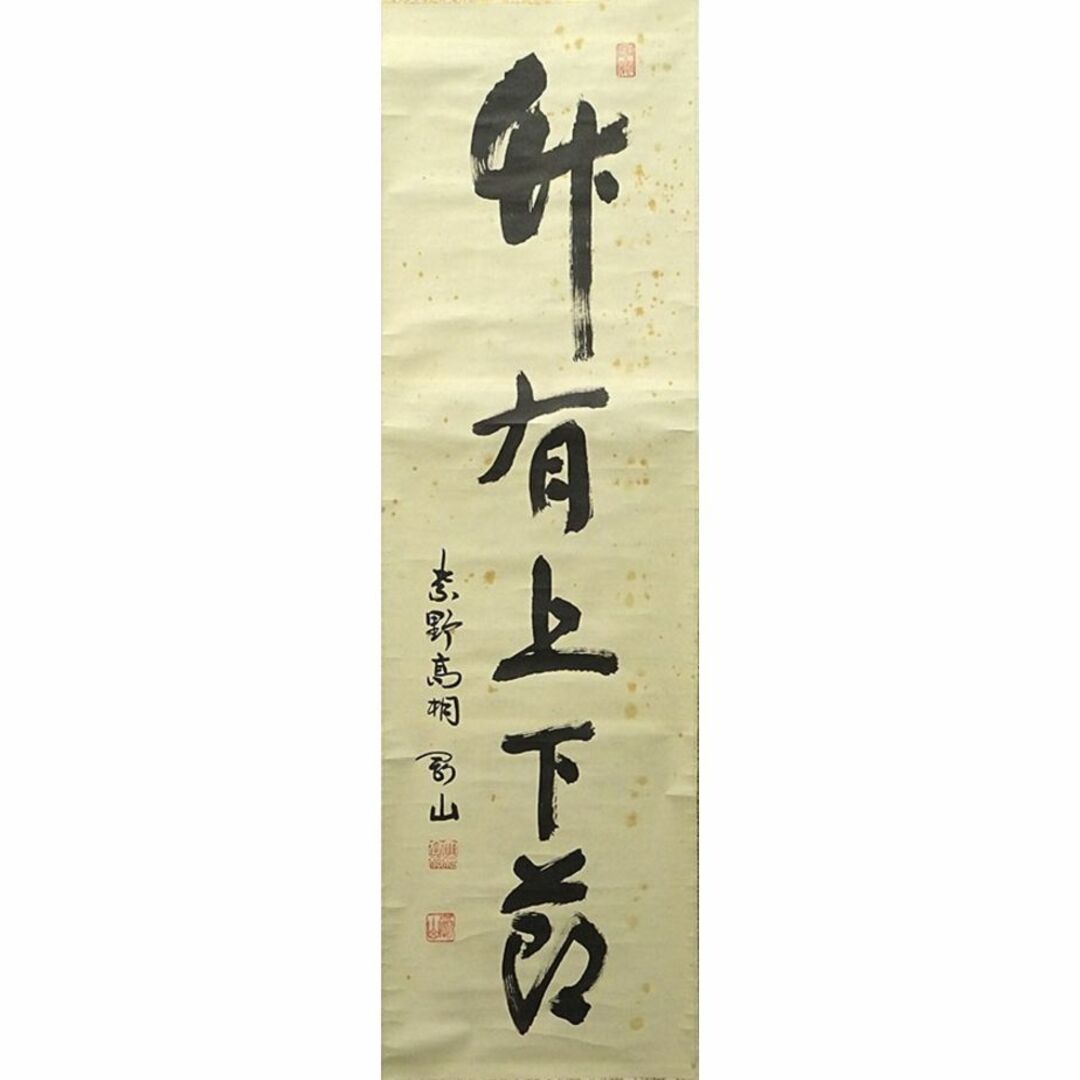 竹有上下節
紫野高桐 剛山